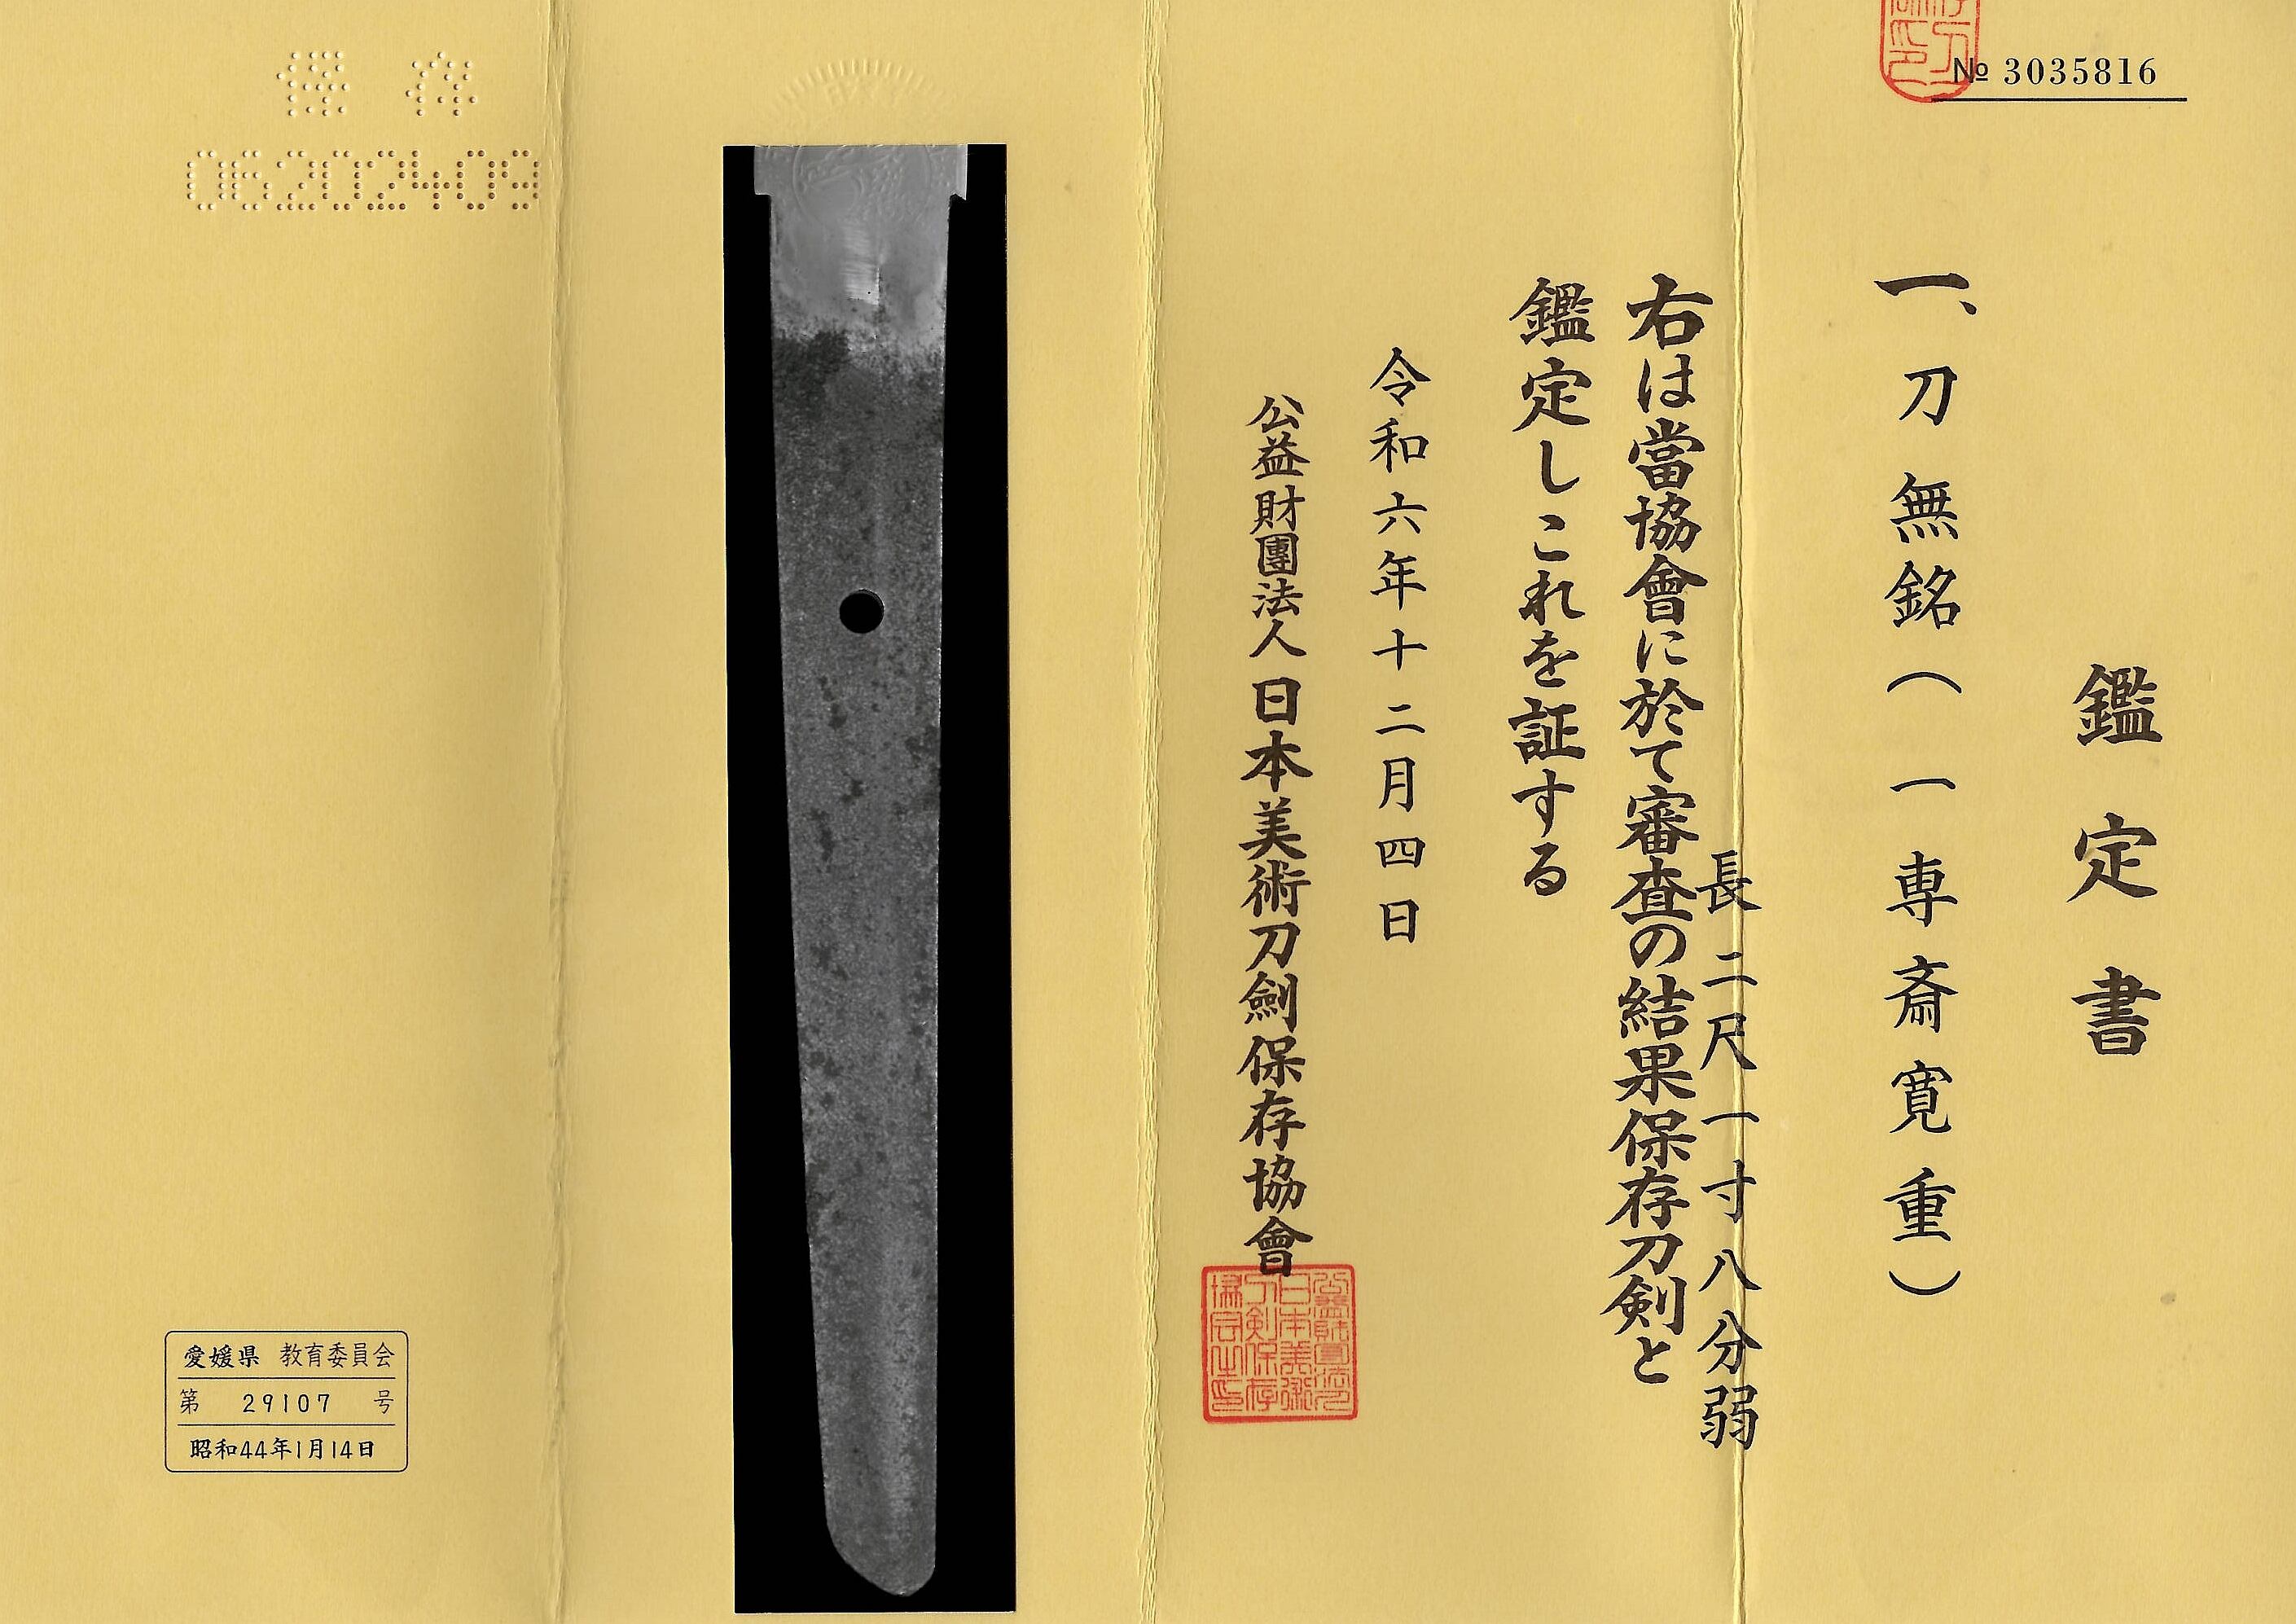 № 3035816
鑑定書
一、刀 無銘(一専斎寛重)
長二尺一寸八分弱
右は當協會に於て審査の結果保存刀剣と
鑑定しこれを証する
令和六年十二月四日
公益財團法人日本美術刀劍保存協會
保存
06202409
愛媛県 教育委員会
第 29107 号
昭和44年1月14日